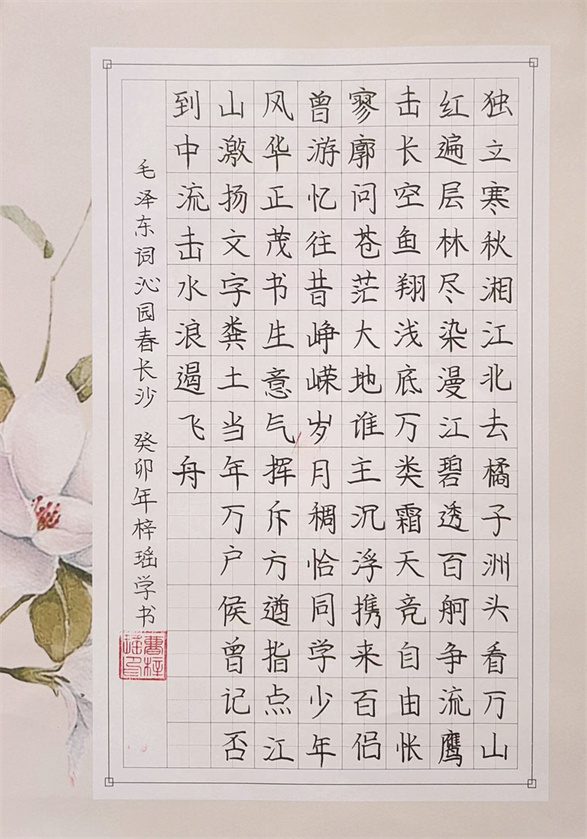 独立寒秋湘江北去橘子洲头看万山
红遍层林尽染漫江碧透百舸争流鹰
击长空鱼翔浅底万类霜天竞自由怅
寥廓问苍茫大地谁主沉浮携来百侣
曾游忆往昔峥嵘岁月稠恰同学少年
风华正茂书生意气挥斥方遒指点江
山激扬文字粪土当年万户侯曾记否
到中流击水浪遏飞舟
毛泽东词沁园春长沙 癸卯年梓瑶学书
曹梓瑶印